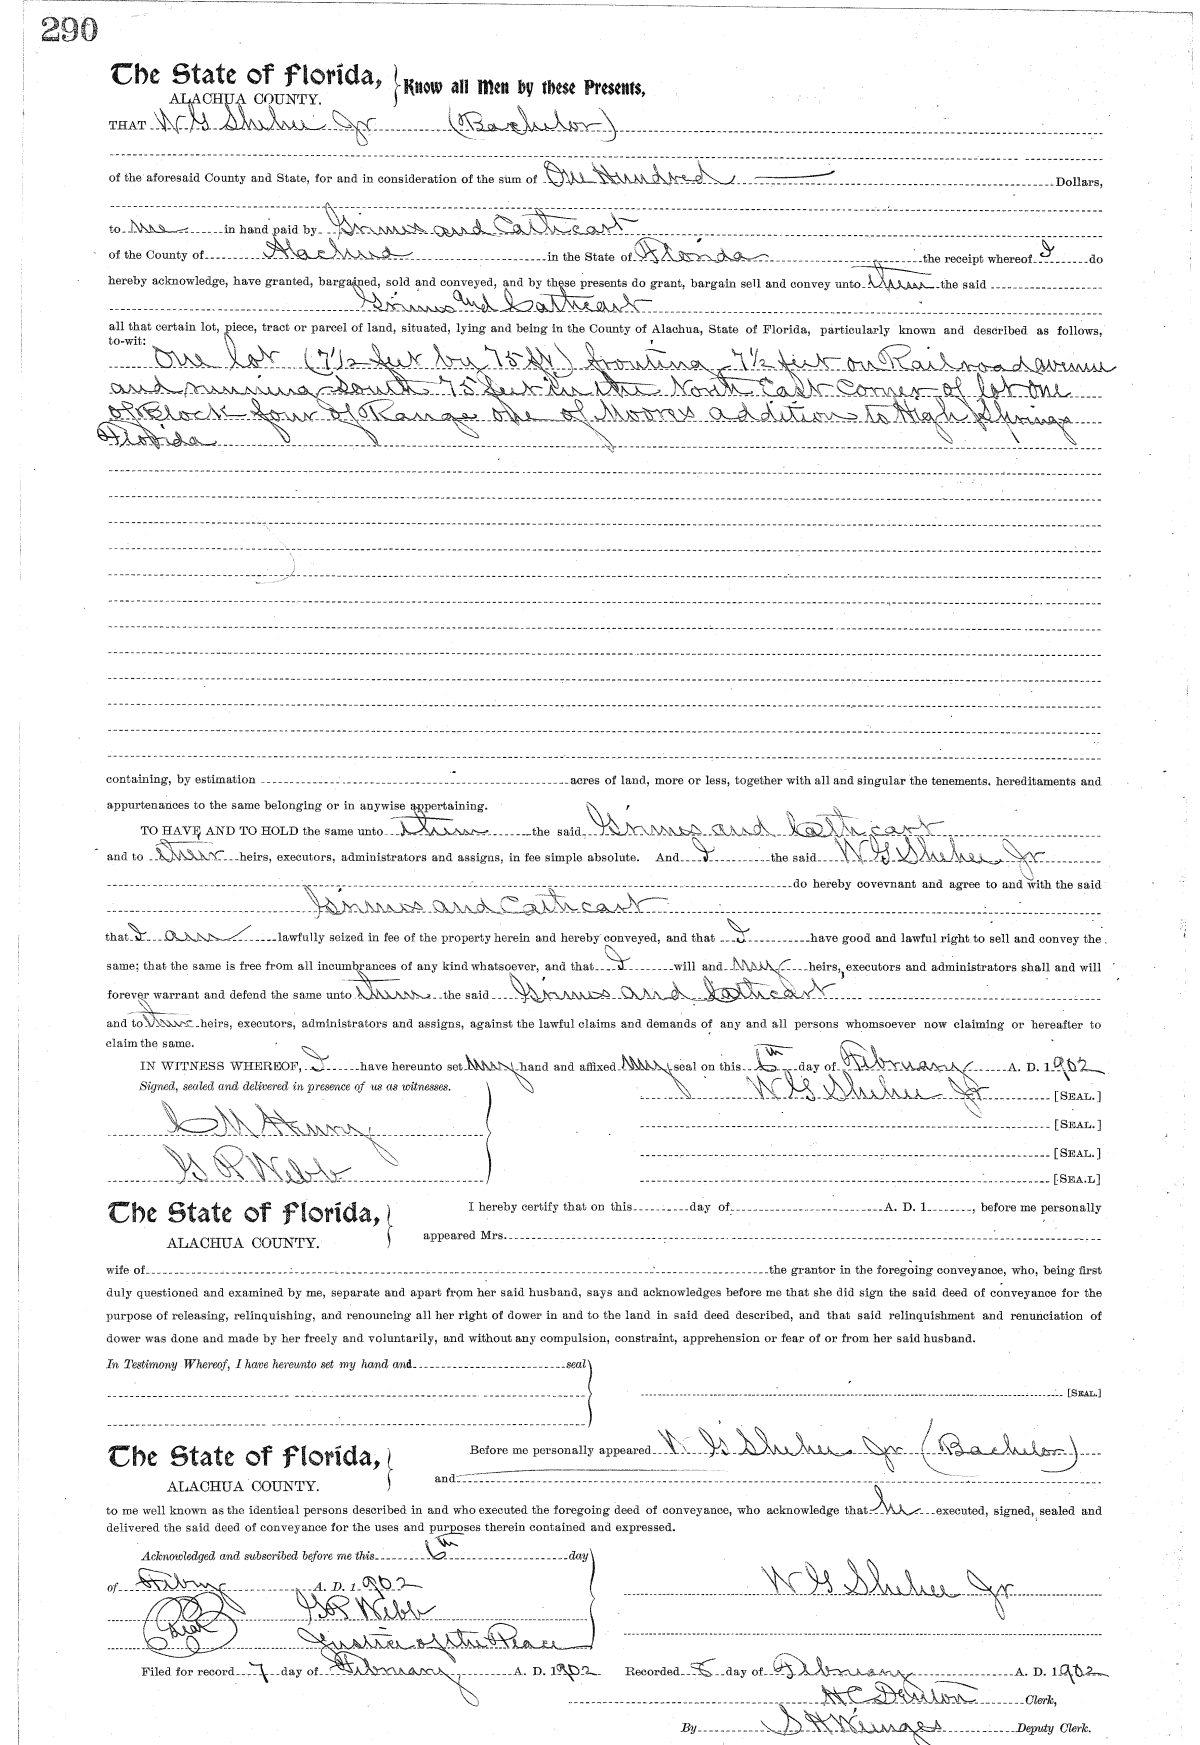 290
The State of Florida,
Know all Men by these Presents,
ALACHUA COUNTY.
THAT W G Shehee Jr (Bachelor)
of the aforesaid County and State, for and in consideration of the sum of One Hundred Dollars,
to me in hand paid by Grimes and Cathcart
of the County of Alachua in the State of Florida the receipt whereof I do
hereby acknowledge, have granted, bargained, sold and conveyed, and by these presents do grant, bargain sell and convey unto them the said
Grimes and Cathcart
all that certain lot, piece, tract or parcel of land, situated, lying and being in the County of Alachua, State of Florida, particularly known and described as follows,
to-wit:
One lot (7½ feet by 75 ft) fronting 7½ feet on Railroad avenue
and running south 75 feet in the North East Corner of lot one
of Block four of Range one of Moores addition to High Springs
Florida
containing, by estimation acres of land, more or less, together with all and singular the tenements, hereditaments and
appurtenances to the same belonging or in anywise appertaining.
TO HAVE AND TO HOLD the same unto them the said Grimes and Cathcart
and to their heirs, executors, administrators and assigns, in fee simple absolute. And I the said W G Shehee Jr
do hereby covevnant and agree to and with the said
Grimes and Cathcart
that I am lawfully seized in fee of the property herein and hereby conveyed, and that I have good and lawful right to sell and convey the
same; that the same is free from all incumbrances of any kind whatsoever, and that I will and my heirs, executors and administrators shall and will
forever warrant and defend the same unto them the said Grimes and Cathcart
and to their heirs, executors, administrators and assigns, against the lawful claims and demands of any and all persons whomsoever now claiming or hereafter to
claim the same.
IN WITNESS WHEREOF, I have hereunto set my hand and affixed my seal on this 6th day of February A. D. 1902
Signed, sealed and delivered in presence of us as witnesses.
W G Shehee Jr [SEAL.]
C M Henry [SEAL.]
[SEAL.]
G R Webb [SEA.L]
The State of Florida,
I hereby certify that on this day of A. D. 1 , before me personally
ALACHUA COUNTY.
appeared Mrs.
wife of the grantor in the foregoing conveyance, who, being first
duly questioned and examined by me, separate and apart from her said husband, says and acknowledges before me that she did sign the said deed of conveyance for the
purpose of releasing, relinquishing, and renouncing all her right of dower in and to the land in said deed described, and that said relinquishment and renunciation of
dower was done and made by her freely and voluntarily, and without any compulsion, constraint, apprehension or fear of or from her said husband.
In Testimony Whereof, I have hereunto set my hand and seal
[SEAL.]
The State of Florida,
Before me personally appeared W G Shehee Jr (Bachelor)
ALACHUA COUNTY.
and
to me well known as the identical persons described in and who executed the foregoing deed of conveyance, who acknowledge that he executed, signed, sealed and
delivered the said deed of conveyance for the uses and purposes therein contained and expressed.
Acknowledged and subscribed before me this 6th day
of Febry A. D. 1902
W G Shehee Jr
Seal
G R Webb
Justice of the Peace
Filed for record 7 day of February A. D. 1902 Recorded 8 day of February A. D. 1902
H C Denton Clerk,
By S H Wienges Deputy Clerk.